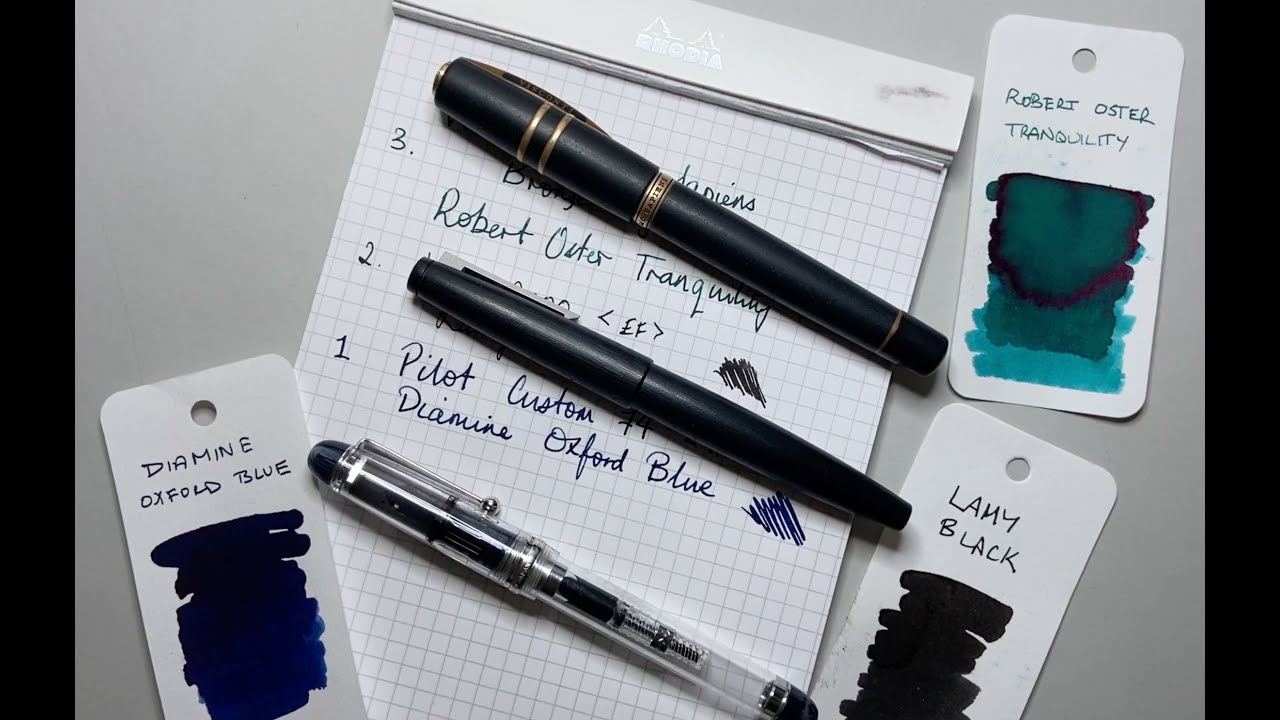 RHODIA
VISCONTI
3.
Sapiens
Robert Oster Tranquility
2.
<EF>
1 Pilot Custom 74
Diamine Oxford Blue
ROBERT OSTER
TRANQUILITY
DIAMINE
OXFOLD BLUE
LAMY
BLACK